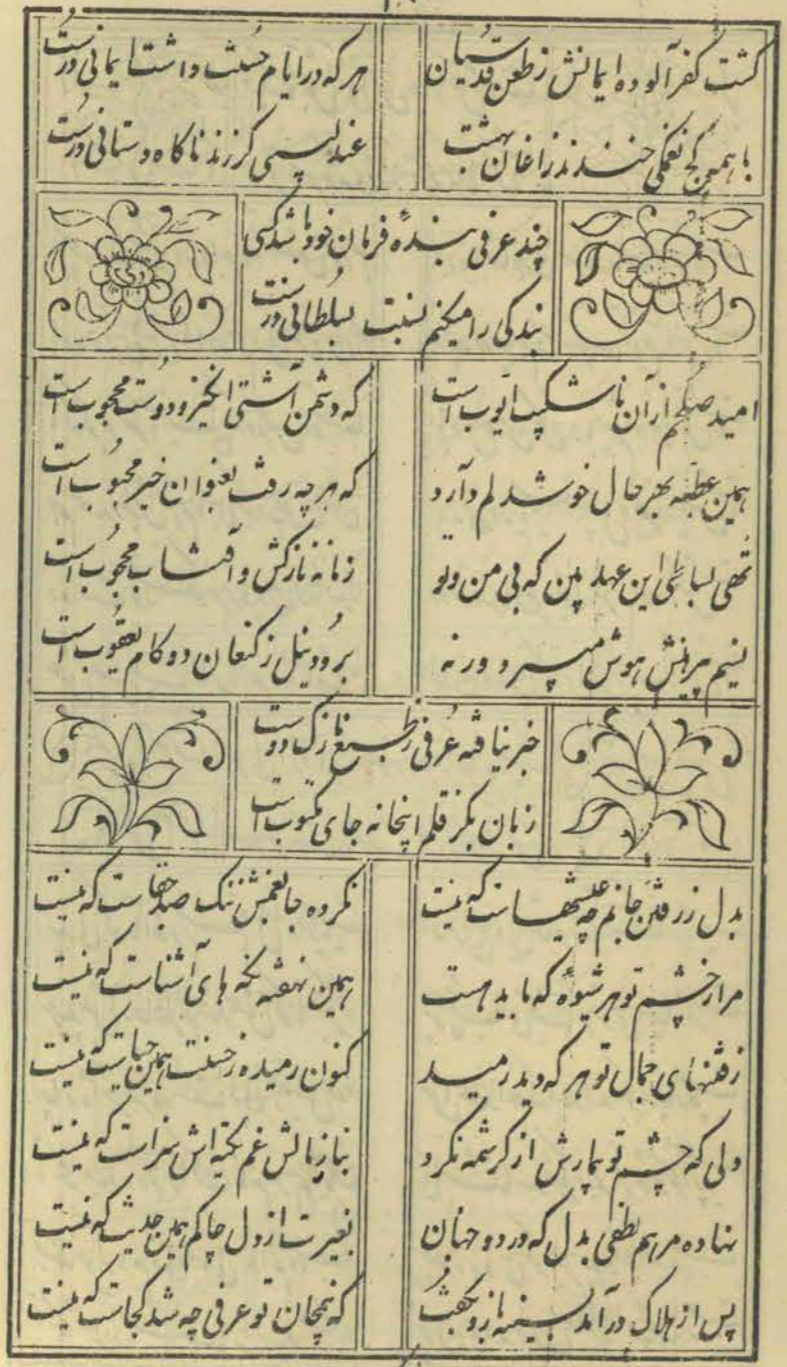 گشت کفر آلوده ایمانش ز طعن قدسیان
هر که در ایام حسنت داشت ایمانی درست
با همین کج نغمگی خندند زاغان بهشت
عندلیبی گر زند ناگاه دستانی درست
چند عرفی بندهٔ فرمان خود باشد کسی
بندگی را میکنم نسبت بسلطانی درست
امید صلحم از آن ناشکیب ایوب است
که دشمن آشتی انگیز و دوست محجوب است
همین عطیه بهر حال خوشدلم دارد
که هر چه رفت بعنوان خیر محبوب است
تهی بساطی این عهد بین که بی من و تو
زمانه نازکش و آفتاب محجوب است
نسیم پیرهنش هوش میبرد ورنه
برود نیل ز کنعان دو کام یعقوب است
خبر نیافته عرفی ز طبع نازک دوست
زبان بکز قلم اینجا نه جای مکتوب است
بدل ز رفتن جانم چه عیشهاست که نیست
نکرده جا بغمش ننگ صد جفاست که نیست
مرا ز چشم تو هر شیوهٔ که باید هست
همین نهفته نگه های آشناست که نیست
ز فتنهای جمال تو هر که دید رمید
کنون رمیده ز حسنت همین حیاست که نیست
دلی که چشم تو بیمارش از کرشمه نکرد
بناز بالش غم تکیه اش سزاست که نیست
نهاده مرهم لطفی بدل که در دو جهان
بغیرت از دل چاکم همین حدیث که نیست
پس از هلاک درآمد بسینه باز و بگفت
که نیمجان تو عرفی چه شد کجاست که نیست